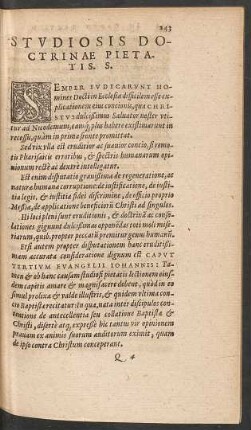 243
STVDIOSIS DO-
CTRINAE PIETA-
TIS. S.
SEMPER IVDICARVNT HO
mines Docti in Ecclesia difficilem esse ex
plicationem eius concionis, qua CHRI-
STVS dulcissimus Saluator noster vti-
tur ad Nicodemum, eamq́; plus habere existimarunt in
recessu, quàm in prima fronte promittat.
Sed tum illa est eruditior ac suauior concio, si remo-
tis Pharisaicis erroribus, & spectris humanarum opi-
nionum rectè ac dextrè intelligatur.
Est enim disputatio grauissima de regeneratione, ac
natura humana corruptione de iustificatione, de iusti-
tia legis, & iustitia fidei discrimine, de officio proprio
Messiæ, de applicatione beneficiorū Christi ad singulos.
Hi loci pleni sunt eruditionis, & doctrinæ ac conso-
lationes gignunt dulcissimam
turum, quòd, propter peccatū premitur genus humanū.
Etsi autem propter disputationem hanc eruditissi-
mam accurata consideratione dignum est CAPVT
TERTIVM EVANGELII IOHANNIS: Ta-
men & ob hanc causam studiosi pietatis lectionem eius-
dem capitis amare & magnifacere debent, quòd in eo
simul prolixa & valde illustris, & quidem vltima con-
cio Baptistæ recitatur in qua, mota inter discipulos con-
tentione de antecellentia seu collatione Baptistæ &
Christi, disertè atq; expressè hic tantus vir opinionem
prauam ex animis suorum auditorum eximit, quam
de ipso contra Christum conceperant.
Q 2